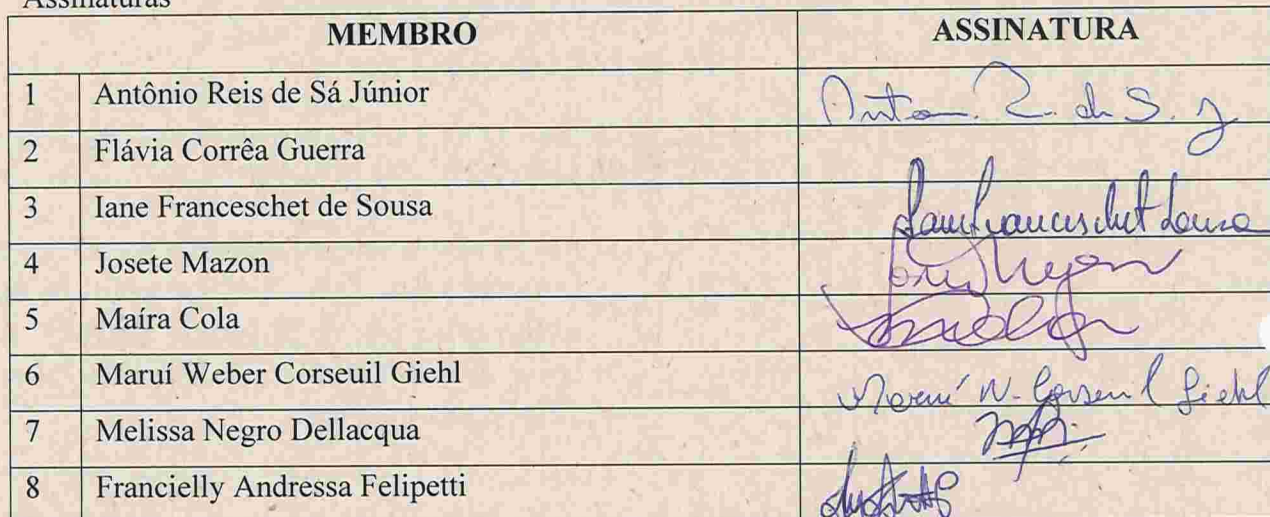 Assinaturas
MEMBRO ASSINATURA
1 Antônio Reis de Sá Júnior
2 Flávia Corrêa Guerra
3 Iane Franceschet de Sousa
4 Josete Mazon
5 Maíra Cola
6 Maruí Weber Corseuil Giehl Maruí W. Corseuil Giehl
7 Melissa Negro Dellacqua
8 Francielly Andressa Felipetti